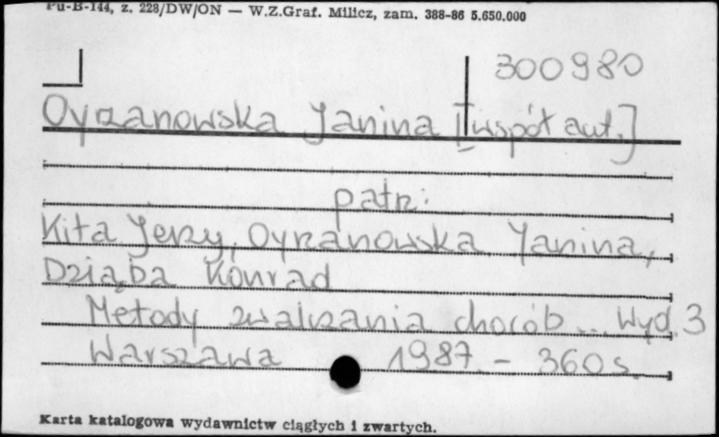 Pu-B-144, z. 228/DW/ON — W.Z.Graf. Milicz, zam. 388-86 5.650.000
300980
Oyrzanowska Janina [współaut.]
patrz:
Kita Jerzy, Oyrzanowska Janina,
Dziąba Konrad
Metody zwalczania chorób... Wyd. 3
Warszawa 1987. - 360 s.
Karta katalogowa wydawnictw ciągłych i zwartych.